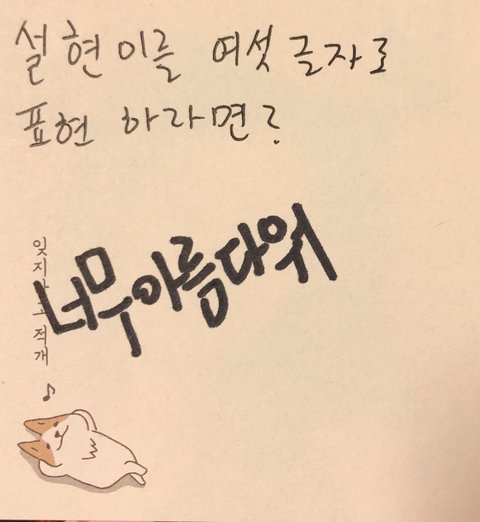 설현이를 여섯글자로
표현 하라면?
너무아름다워
잊지말고 적개